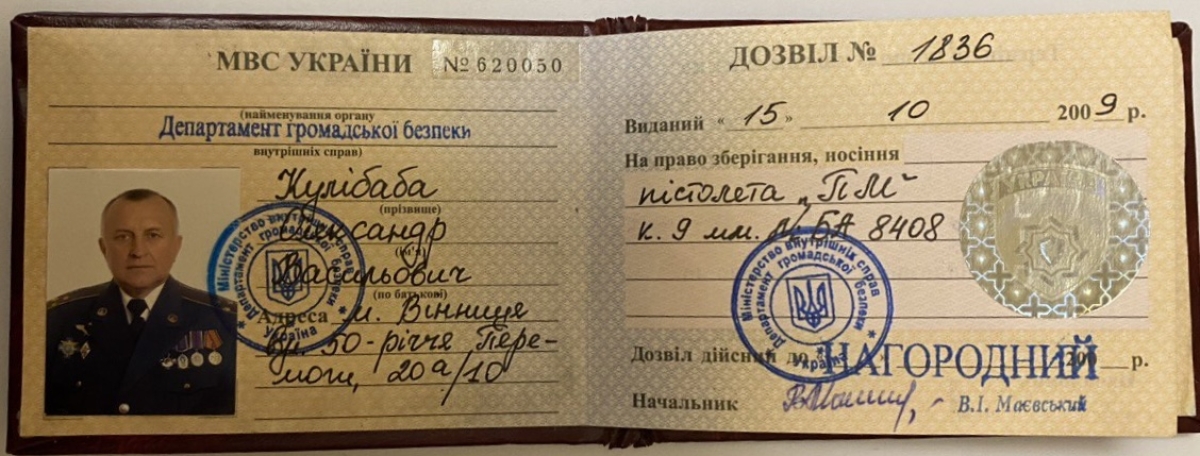 МВС УКРАЇНИ № 620050
(найменування органу
Департамент громадської безпеки
внутрішніх справ)
Кулібаба
(прізвище)
Олександр
(ім'я)
Васильович
(по батькові)
Адреса м. Вінниця
вул. 50-річчя Пере-
моги, 20а/10
Міністерство внутрішніх справ
Департамент громадської безпеки
Україна
ДОЗВІЛ № 1836
Виданий « 15 » 10 2009 р.
На право зберігання, носіння
пістолета „ПМ"
к. 9 мм. № БА 8408
УКРАЇНА
Міністерство внутрішніх справ
Департамент громадської безпеки
Україна
Дозвіл дійсний до 200 р.
НАГОРОДНИЙ
Начальник В.І. Маєвський